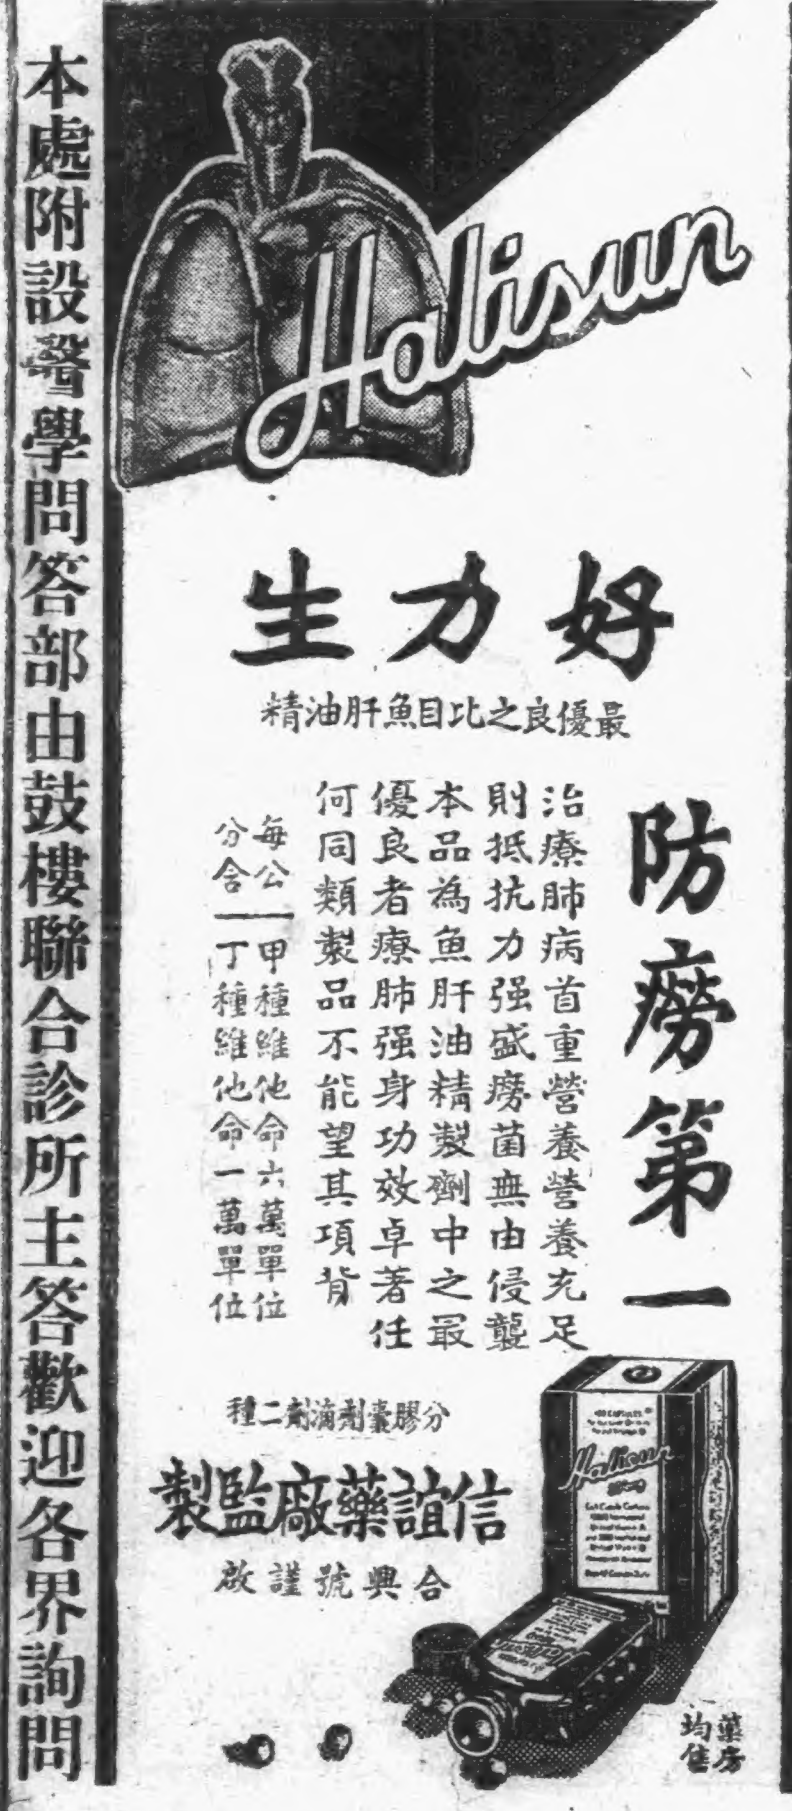 Halisun
好力生
最優良之比目魚肝油精
防癆第一
治療肺病首重營養營養充足
則抵抗力强盛癆菌無由侵襲
本品為魚肝油精製劑中之最
優良者療肺强身功效卓著任
何同類製品不能望其項背
每公分含
甲種維他命六萬單位
丁種維他命一萬單位
分膠囊劑滴劑二種
信誼藥廠監製
合興號謹啟
Halisun
藥房均售
本處附設醫學問答部由鼓樓聯合診所主答歡迎各界詢問